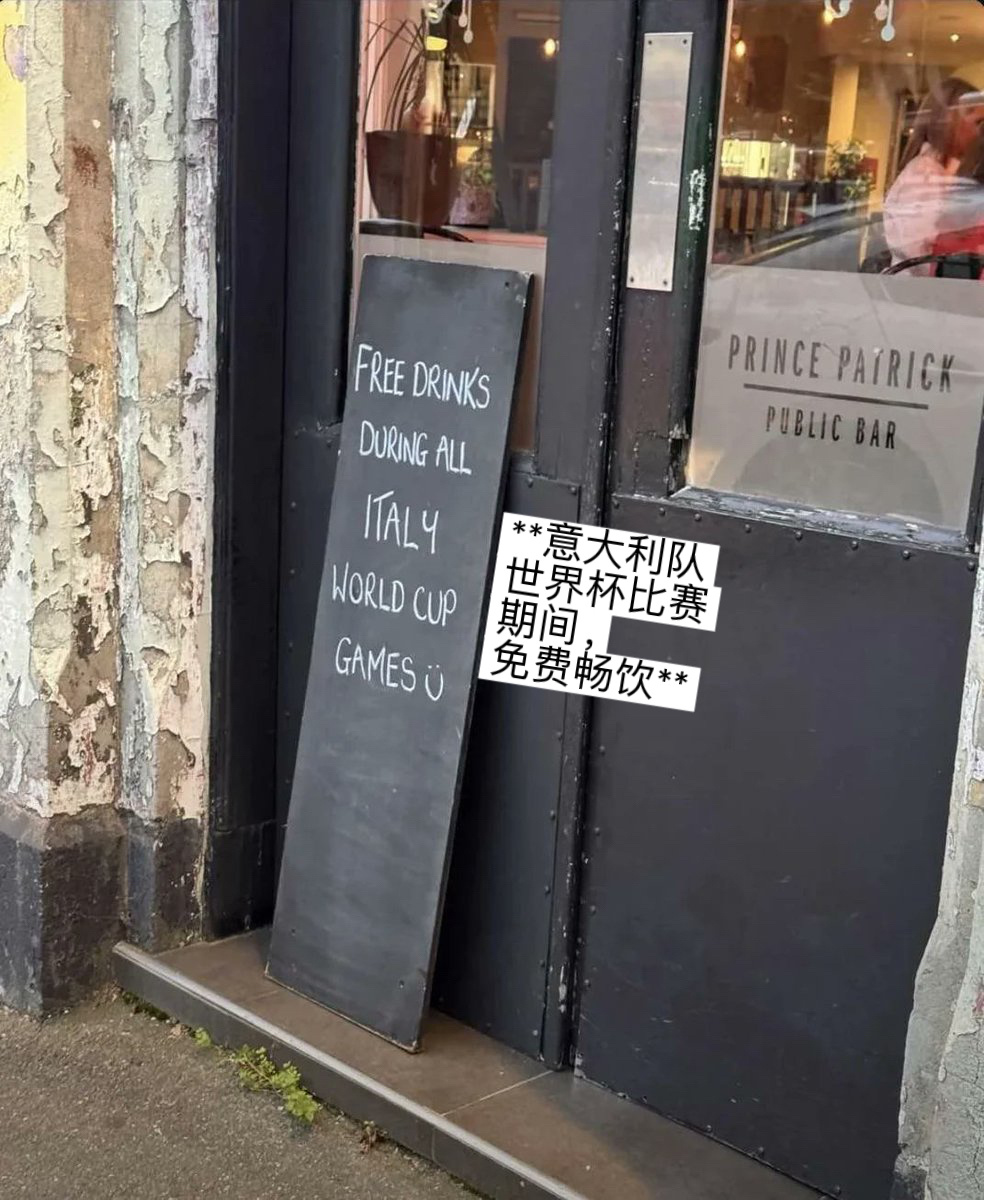 FREE DRINKS
DURING ALL
ITALY
WORLD CUP
GAMES ü
PRINCE PATRICK
PUBLIC BAR
**意大利队
世界杯比赛
期间，
免费畅饮**